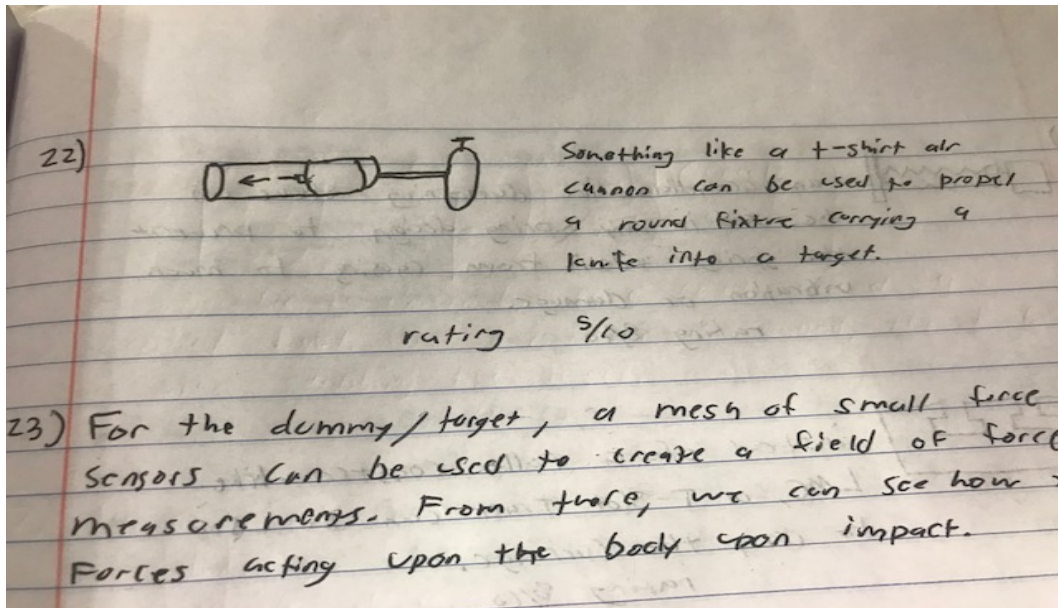 22)
Something like a t-shirt air
cannon can be used to propel
a round fixture carrying a
knife into a target.
rating 5/10
23) For the dummy/target, a mesh of small force
sensors can be used to create a field of force
measurements. From there, we can see how
Forces acting upon the body upon impact.